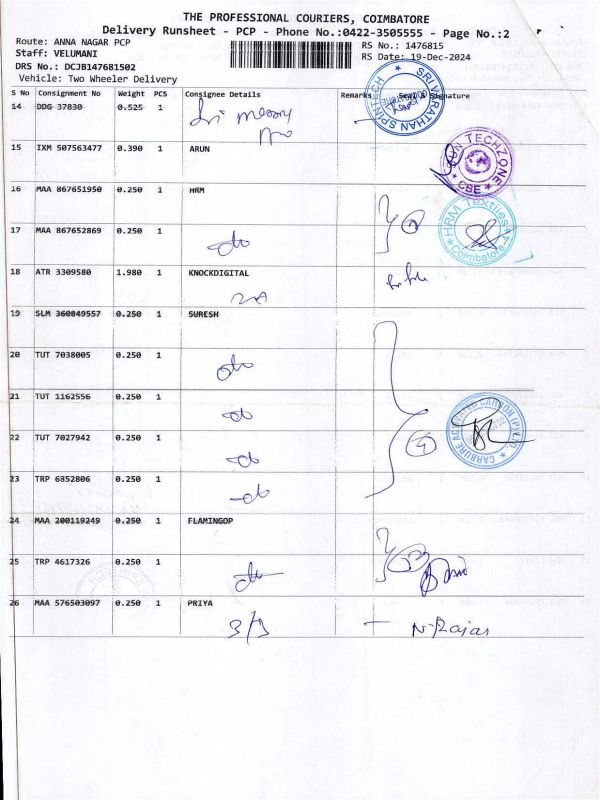 THE PROFESSIONAL COURIERS, COIMBATORE
Delivery Runsheet - PCP - Phone No.:0422-3505555 - Page No.:2
Route: ANNA NAGAR PCP
RS No.: 1476815
Staff: VELUMANI
RS Date: 19-Dec-2024
DRS No.: DCJB147681502
Vehicle: Two Wheeler Delivery
S No Consignment No Weight PCS Consignee Details Remarks Seal & Signature
14 DDG 37830 0.525 1
SRIVARATHAN SPINTECH
15 IXM 507563477 0.390 1 ARUN
SUN TECHZONE
CBE
16 MAA 867651950 0.250 1 HRM
HRM Textiles
Coimbatore
17 MAA 867652869 0.250 1
do
18 ATR 3309580 1.980 1 KNOCKDIGITAL
19 SLM 360849557 0.250 1 SURESH
20 TUT 7038005 0.250 1
do
21 TUT 1162556 0.250 1
do
CARBURE ACTIVATED CARBON (P) LTD
22 TUT 7027942 0.250 1
do
23 TRP 6852806 0.250 1
do
24 MAA 200119249 0.250 1 FLAMINGOP
25 TRP 4617326 0.250 1
do
26 MAA 576503097 0.250 1 PRIYA
N. Rajas